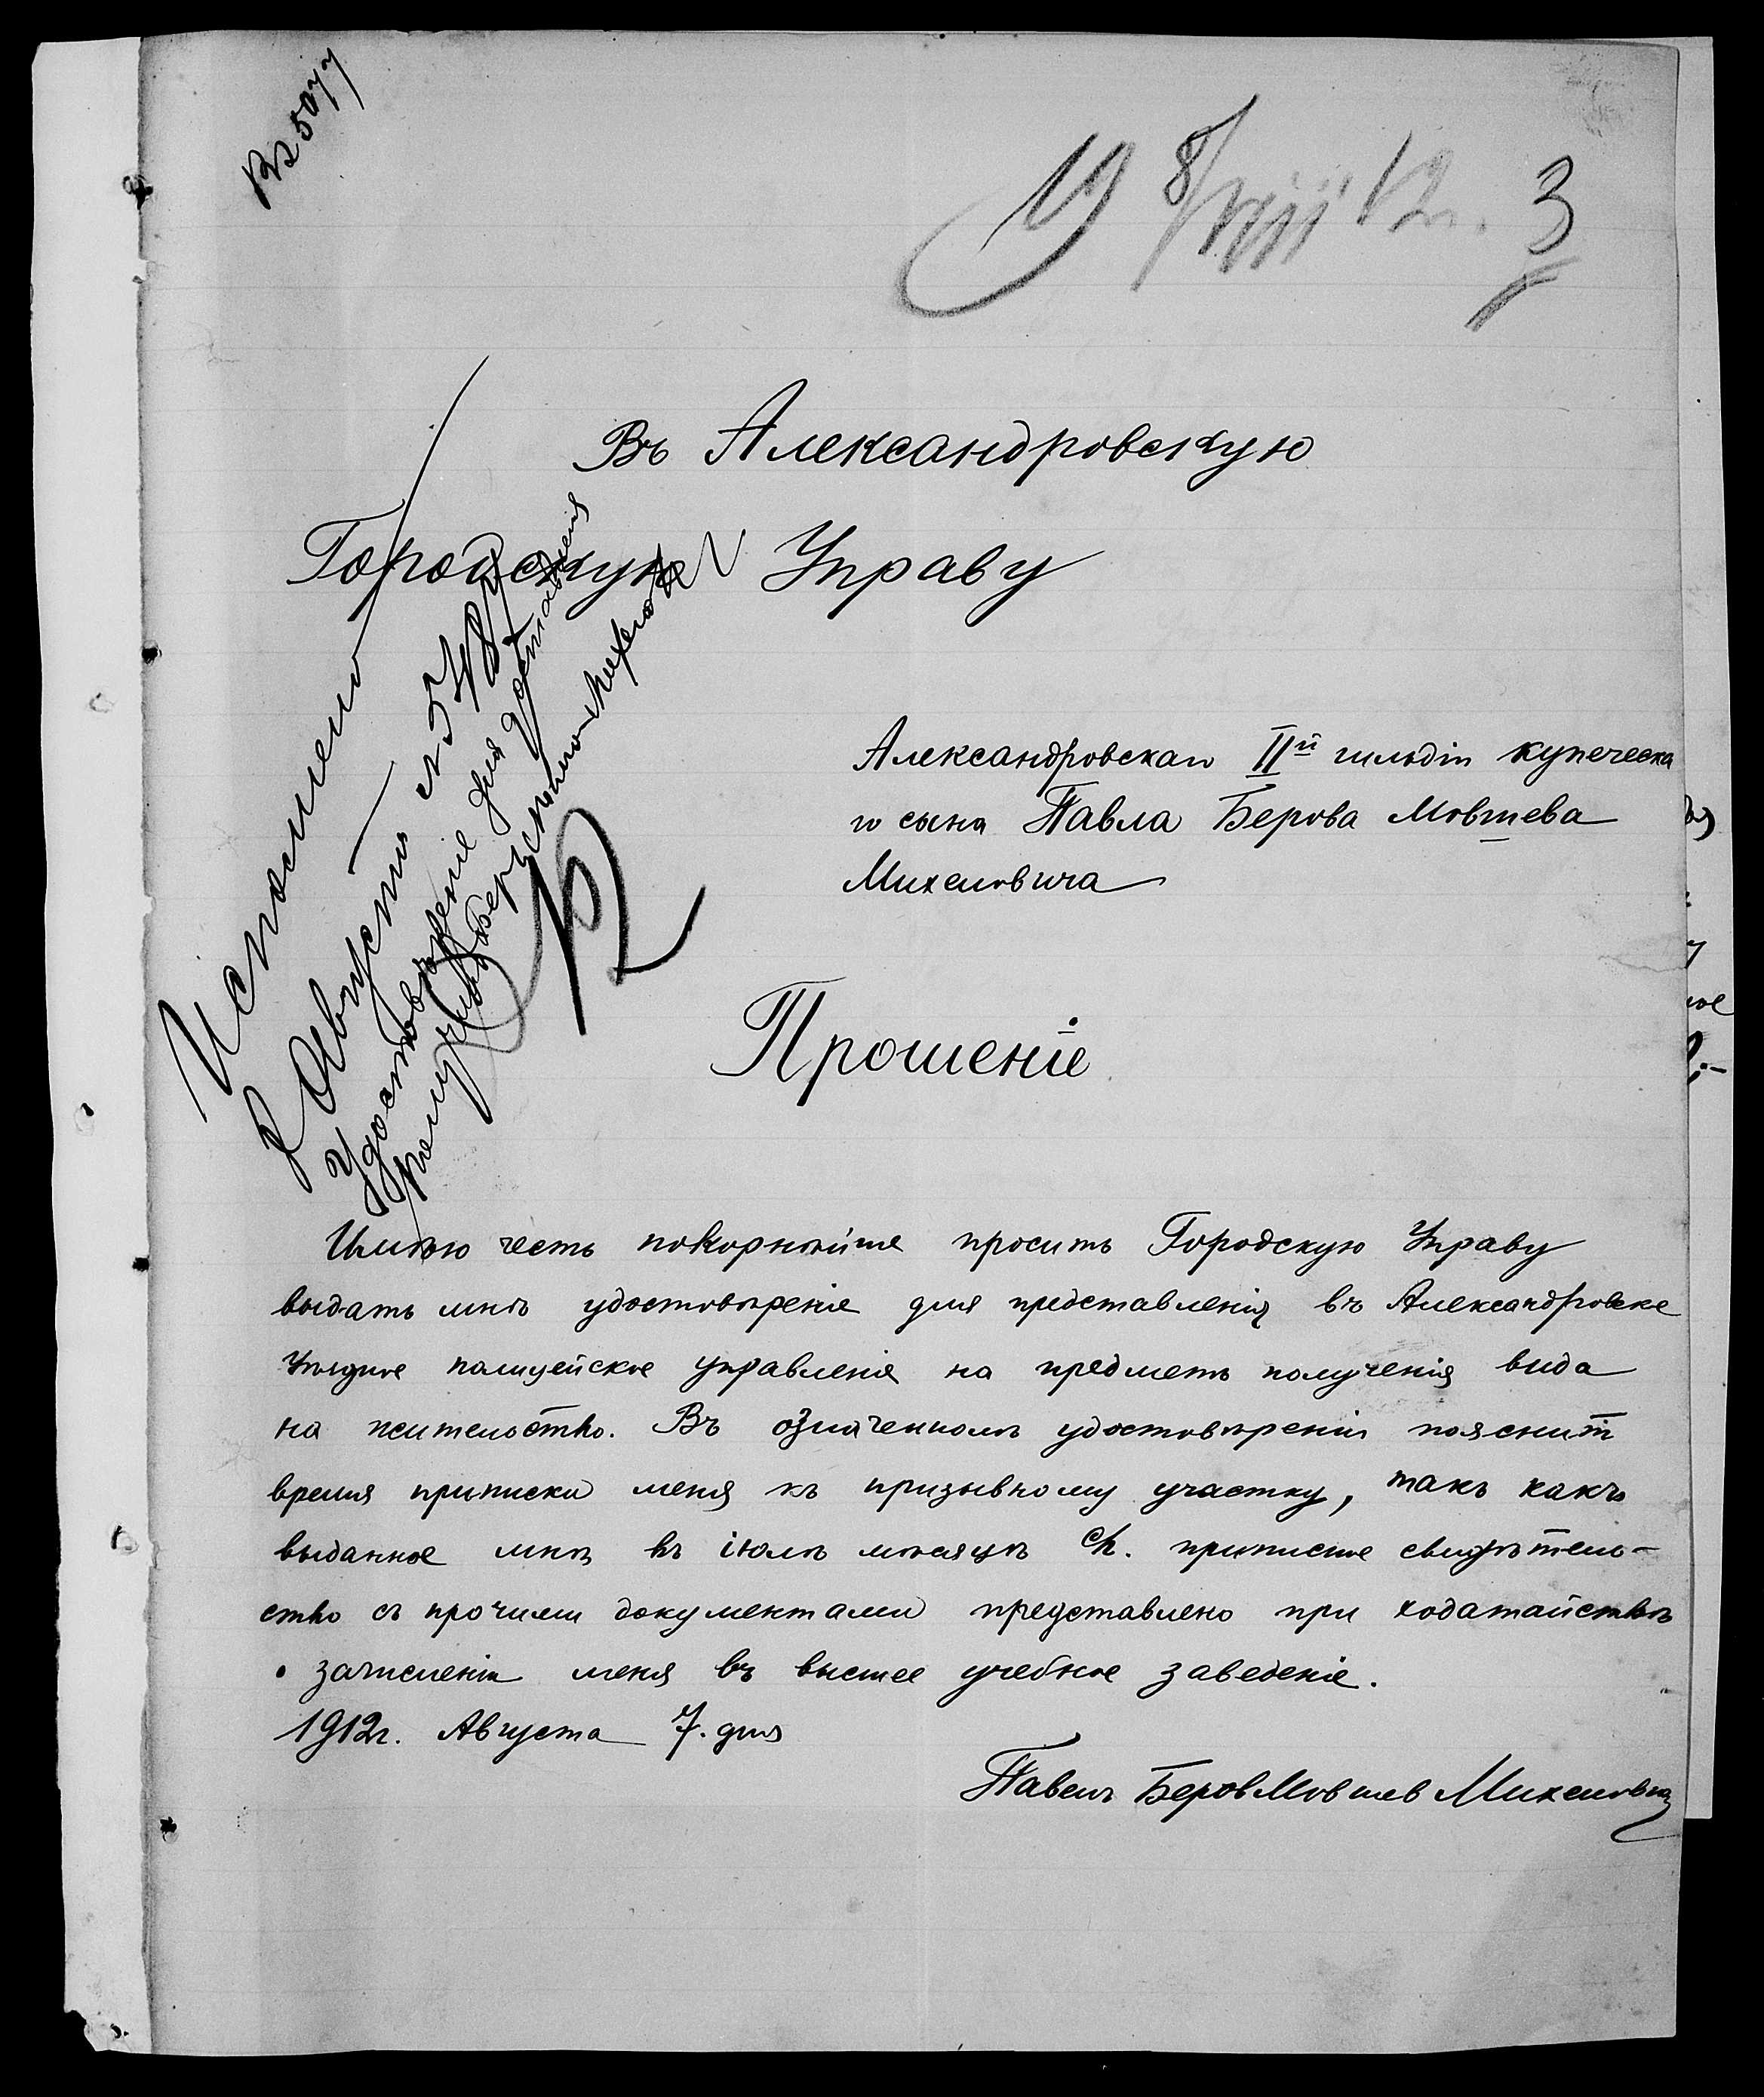 Вх 5077
19 8/VIII 12 г. 3
Въ Александровскую
Городскую Управу
Александровскаго IIй гильдіи купеческа
го сына Павла Берова Мовшева
Михелевича
Исполнено
8 Августа № 5487
Удостовѣреніе для доставленія
получилъ
Прошеніе
Имѣю честь покорнѣйше просить Городскую Управу
выдать мнѣ удостовѣреніе для представленія въ Александровское
Уѣздное полицейское управленіе на предметъ полученія вида
на жительство. Въ означенномъ удостовѣреніи пояснить
время приписки меня къ призывному участку, такъ какъ
выданное мнѣ въ іюлѣ мѣсяцѣ с/г. приписное свидѣтель-
ство съ прочими документами представлено при ходатайствѣ
о зачисленіи меня въ высшее учебное заведеніе.
1912 г. Августа 7. дня
Павелъ Беров Мовшев Михелевич